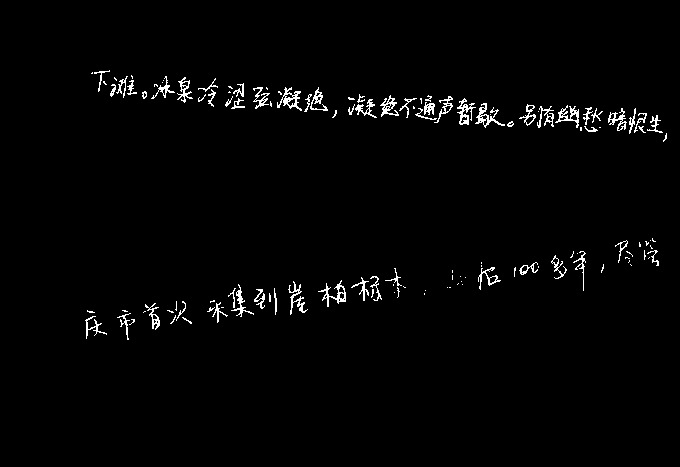 下滩。冰泉冷涩弦凝绝，凝绝不通声暂歇。另有幽愁暗恨生，
庆市首次采集到崖柏标本，后100多年，尽管